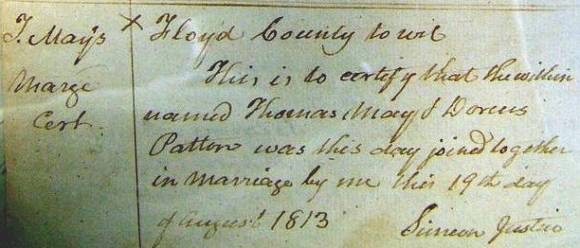 T. Mays
Marge
Cert.
Floyd County to wit
This is to certify that the within
named Thomas May & Dorcus
Patton was this day joined together
in Marriage by me this 19th day
of August 1813
Simeon Justice